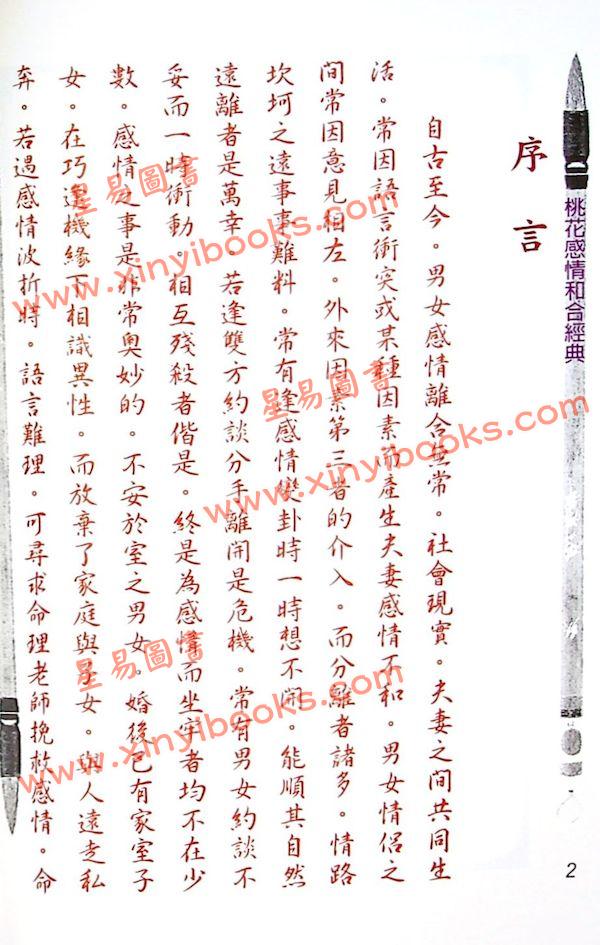 桃花感情和合經典
序言
自古至今。男女感情離合無常。社會現實。夫妻之間共同生
活。常因語言衝突或某種因素而產生夫妻感情不和。男女情侶之
間常因意見相左。外來因素第三者的介入。而分離者諸多。情路
坎坷之遠事事難料。常有逢感情變卦時一時想不開。能順其自然
遠離者是萬幸。若逢雙方約談分手離開是危機。常有男女約談不
妥而一時衝動。相互殘殺者偕是。終是為感情而坐牢者均不在少
數。感情之事是非常奧妙的。不安於室之男女。婚後已有家室子
女。在巧逢機緣下相識異性。而放棄了家庭與子女。與人遠走私
奔。若遇感情波折時。語言難理。可尋求命理老師挽救感情。命
2
星易圖書
www.xinyibooks.com
星易圖書
www.xinyibooks.com
星易圖書
www.xinyibooks.com